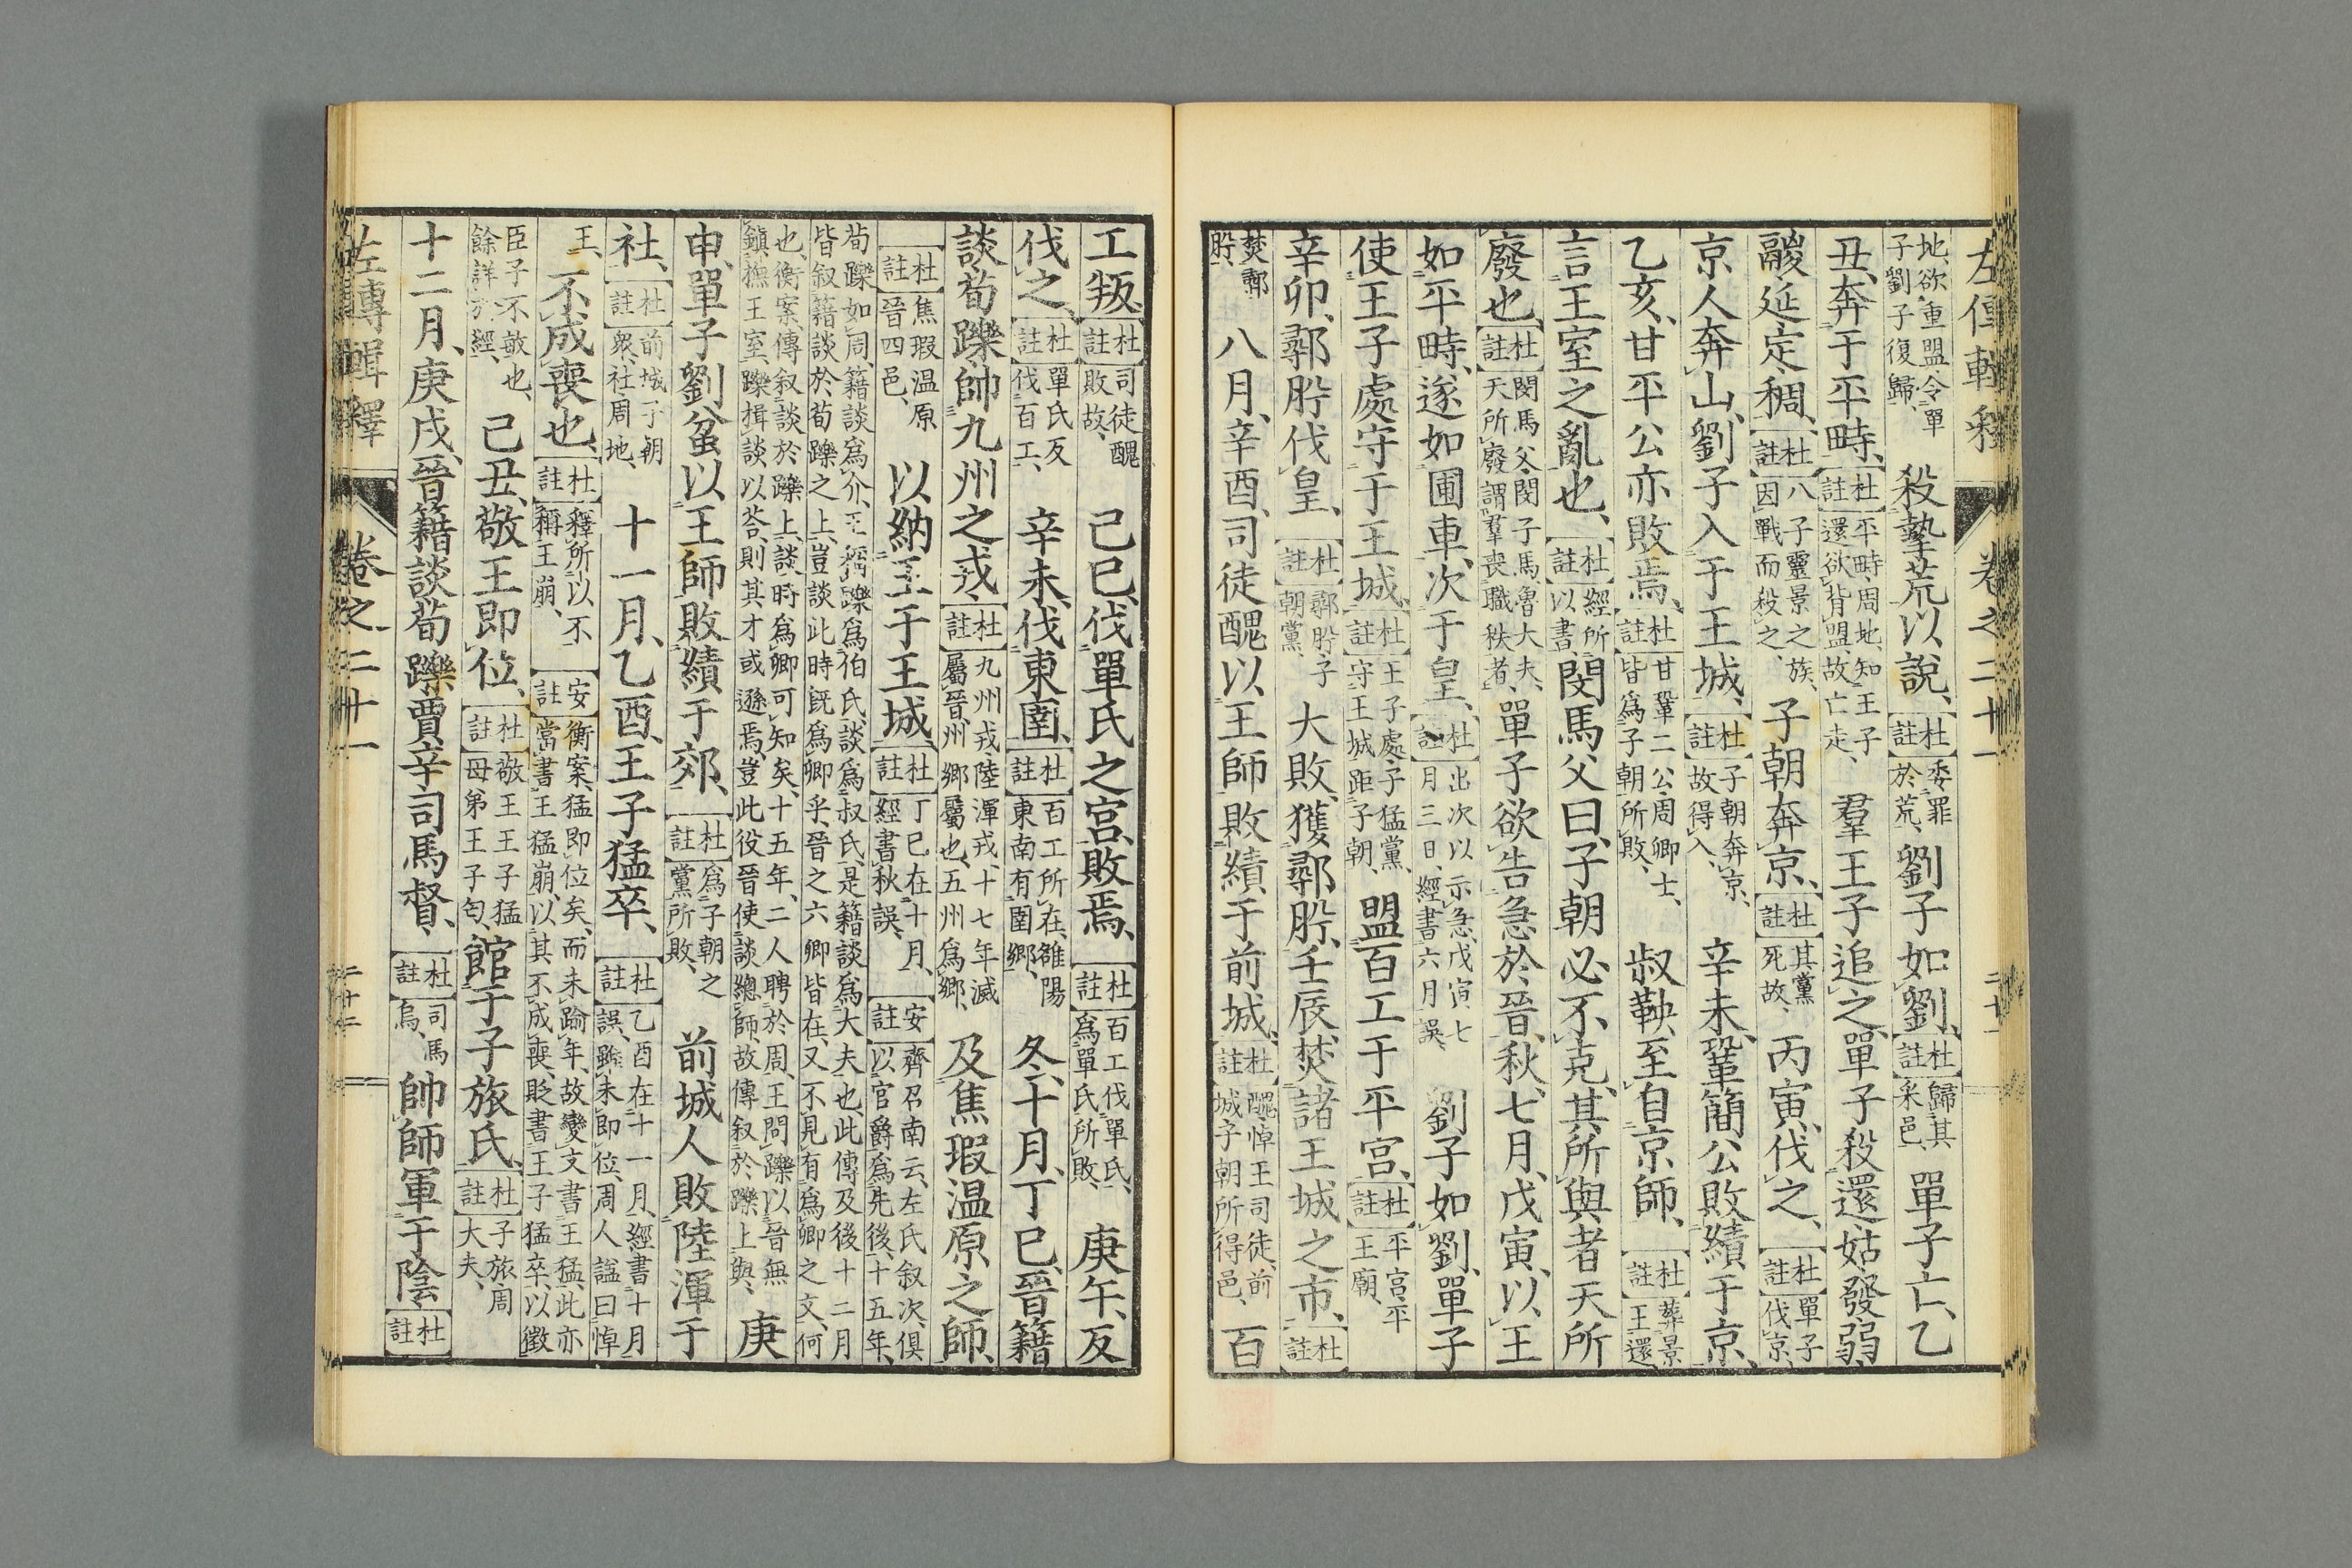 左傳輯釋 卷之二十一 二十一
地、欲重盟、令單子劉子復歸、殺摯荒以說、杜註委罪於荒、劉子如劉、杜註歸其采邑、單子亡、乙
丑、奔于平畤、杜註平畤、周地、知王子還欲背盟、故亡走、羣王子追之、單子殺還姑發弱
鬷延定稠、杜註八子、靈景之族、因戰而殺之、子朝奔京、杜註其黨死故、丙寅、伐之、杜註單子伐京、
京人奔山、劉子入于王城、杜註子朝奔京、故得入、辛未、鞏簡公敗績于京、
乙亥、甘平公亦敗焉、杜註甘鞏二公、周卿士、皆爲子朝所敗、叔鞅至自京師、杜註葬景王還
言王室之亂也、杜註經所以書、閔馬父曰、子朝必不克、其所與者天所
廢也、杜註閔馬父、閔子馬、魯大夫、天所廢、謂羣喪職秩者、單子欲告急於晉、秋、七月、戊寅、以王
如平畤、遂如圃車、次于皇、杜註出次以示急、戊寅七月三日、經書六月誤、劉子如劉、單子
使王子處守于王城、杜註王子處、子猛黨、守王城距子朝、盟百工于平宮、杜註平宮、平王廟、
辛卯、鄩肸伐皇、杜註鄩肸、子朝黨、大敗、獲鄩肸、壬辰、焚諸王城之市、杜註
焚鄩肸、八月、辛酉、司徒醜以王師敗績于前城、杜註醜、悼王司徒、前城、子朝所得邑、百
工叛、杜註司徒醜敗故、己巳、伐單氏之宮、敗焉、杜註百工伐單氏、爲單氏所敗、庚午、反
伐之、杜註單氏反伐百工、辛未、伐東圉、杜註百工所在、雒陽東南有圉鄉、冬、十月、丁巳、晉籍
談荀躒帥九州之戎、杜註九州戎、陸渾戎、十七年滅屬晉、州鄉屬也、五州爲鄉、及焦瑕溫原之師、
杜註焦瑕溫原、晉四邑、以納王于王城、杜註丁巳在十月、經書秋誤、安註齊召南云、左氏叙次、俱以官爵爲先後、十五年、
荀躒如周、籍談爲介、王稱躒爲伯氏、談爲叔氏、是籍談爲大夫也、此傳及後十二月皆叙籍談於荀躒之上、豈談此時既爲卿乎、晉之六卿皆在、又不見有爲卿之文、何
也、衡案、傳叙談於躒上、談時爲卿可知矣、十五年、二人聘於周、王問躒以晉無鎮撫王室、躒揖談以荅、則其才或遜焉、豈此役晉使談總師、故傳叙於躒上與、庚
申、單子劉蚠以王師敗績于郊、杜註爲子朝之黨所敗、前城人敗陸渾于
社、杜註前城、子朝衆、社、周地、十一月、乙酉、王子猛卒、杜註乙酉在十一月、經書十月誤、雖未即位、周人謚曰悼
王、不成喪也、杜註釋所以不稱王崩、安註衡案、猛即位矣、而未踰年、故變文書王猛、此亦當書王猛崩、以其不成喪、貶書王子猛卒、以徵
臣子不敬也、餘詳于經、己丑、敬王即位、杜註敬王、王子猛母弟王子匄、館于子旅氏、杜註子旅、周大夫、
十二月、庚戌、晉籍談荀躒賈辛司馬督、杜註司馬烏、帥師軍于陰、杜註
左傳輯釋 卷之二十一 二十二